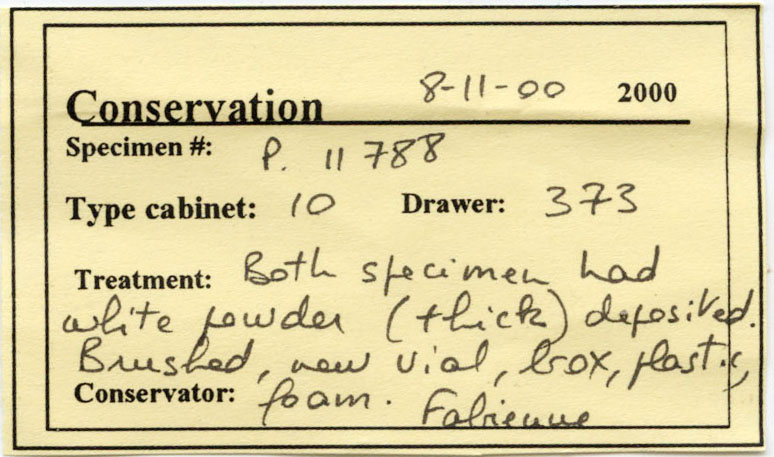 Conservation 8-11-00 2000
Specimen #: P. 11788
Type cabinet: 10 Drawer: 373
Treatment: Both specimen had
white powder (thick) deposited.
Brushed, new vial, box, plastic,
Conservator: foam. Fabienne